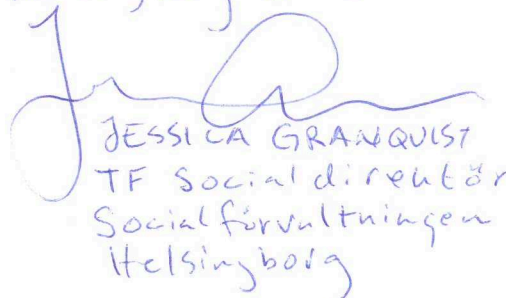 JESSICA GRANQVIST
TF Socialdirektör
Socialförvaltningen
Helsingborg